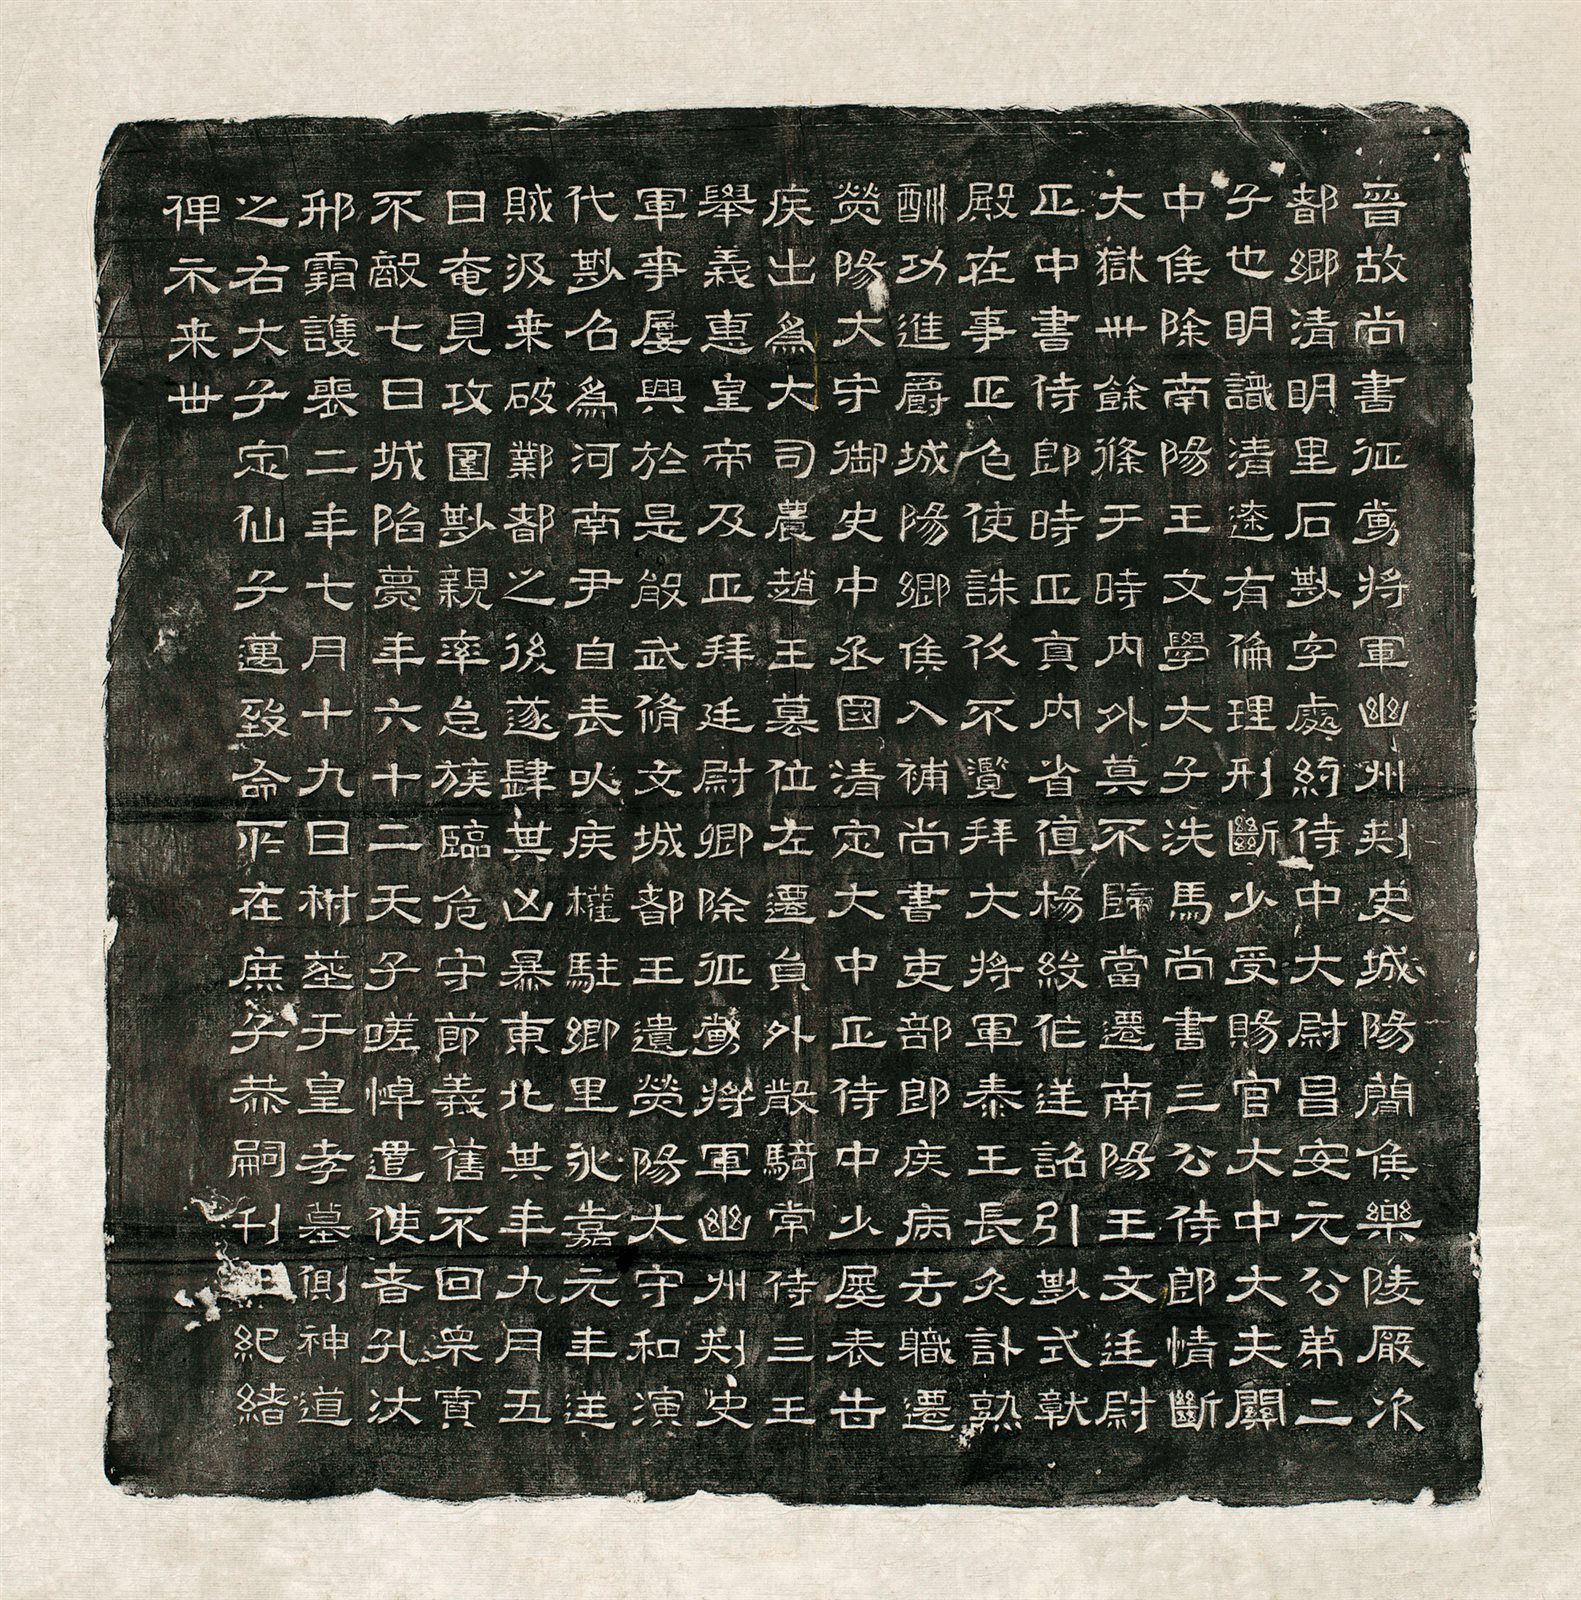 晉故尚書征虜將軍幽州刾史城陽簡侯樂陵厭次
都鄉清明里石尠字處約侍中大尉昌安元公弟二
子也明識清遠有倫理刑斷少受賜官大中大夫關
中侯除南陽王文學大子洗馬尚書三公侍郎情斷
大獄卅餘條于時內外莫不歸當遷南陽王文廷尉
正中書侍郎時正直內省值楊駿作逆詔引尠式乾
殿在事正色使誅伐不濫拜大將軍秦王長史計勲
酬功進爵城陽鄉侯入補尚書吏部郎疾病去職遷
熒陽大守御史中丞國清定大中正侍中少屢表告
疾出為大司農趙王篡位左遷員外散騎常侍三王
舉義惠皇帝反正拜廷尉卿除征虜將軍幽州刾史
軍事屢興於是偃武脩文城都王遣熒陽太守和演
代尠召為河南尹自表以疾權駐鄉里永嘉元年逆
賊汲桒破鄴都之後遂肆其凶暴東北其年九月五
日奄見攻圍尠親率邑族臨危守節義舊不回眾寡
不敵七日城陷薨年六十二天子嗟悼遣使者孔汰
邢霸護喪二年七月十九日祔葬于皇考墓側神道
之右大子定仙子邁致命所在庶子恭嗣刊石紀緒
俾示来世